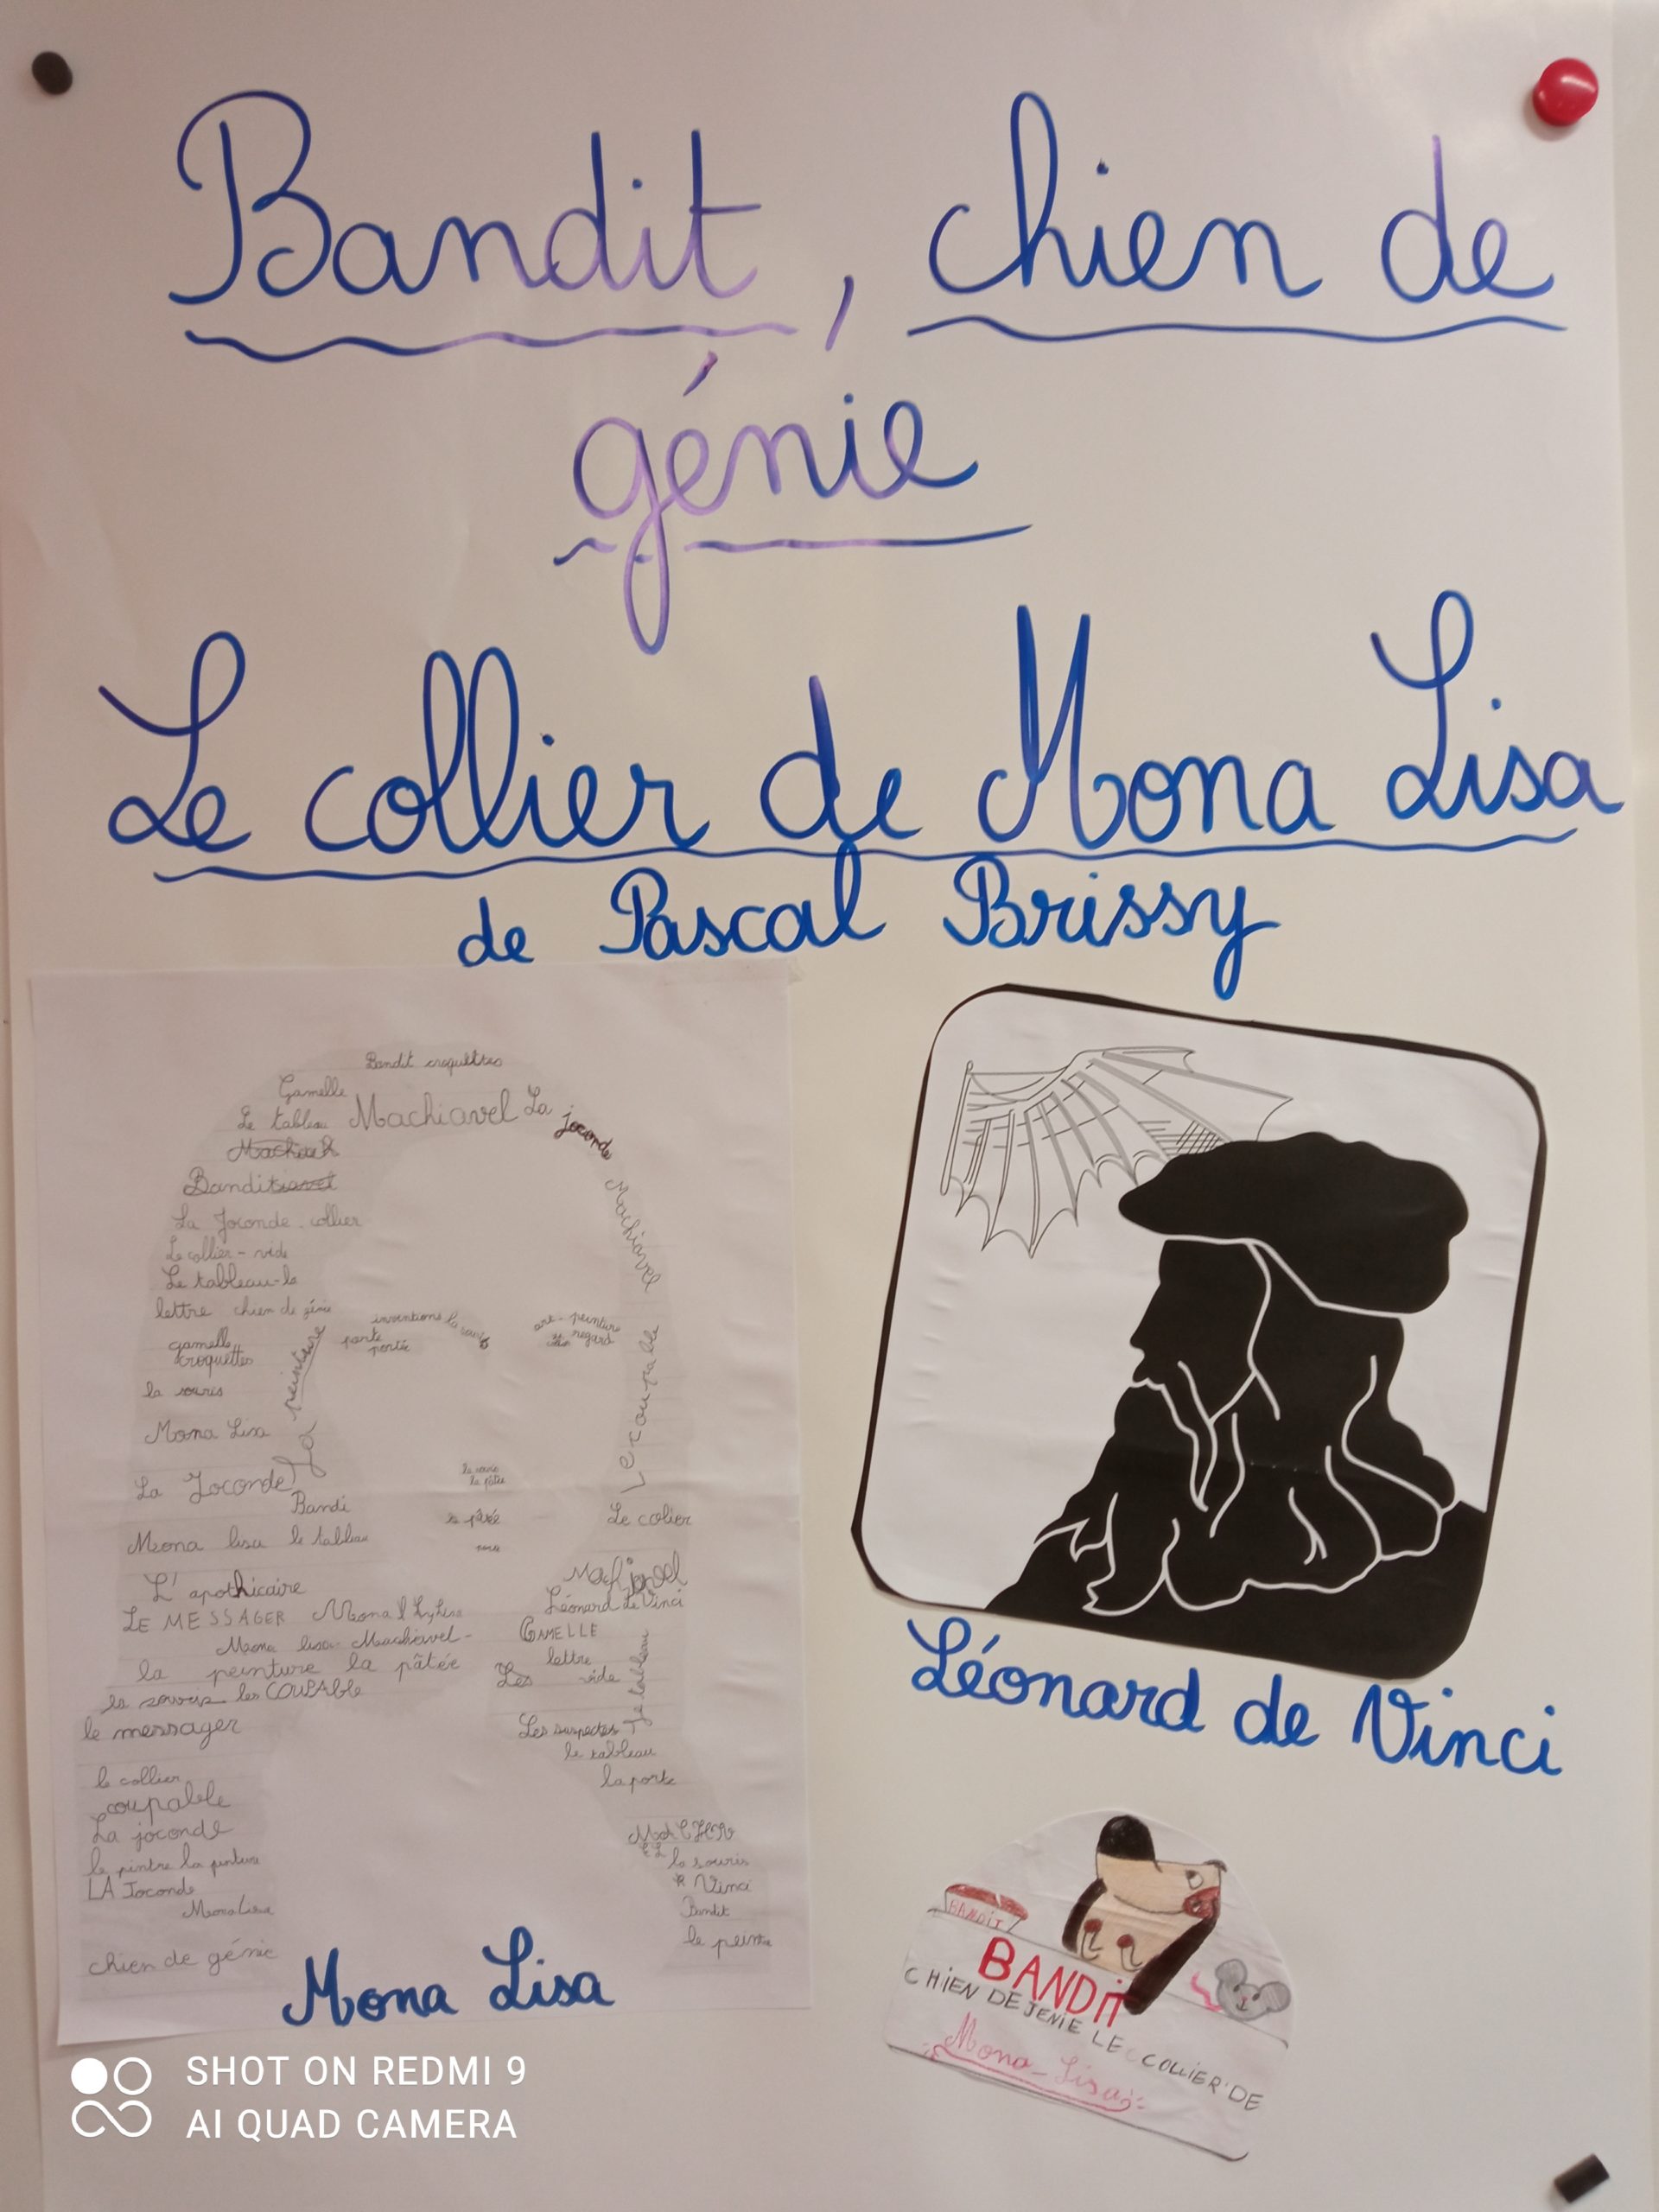 Bandit, chien de
génie
Le collier de Mona Lisa
de Pascal Brissy
Bandit croquettes
Gamelle
Le tableau Machiavel La joconde
Bandit
Machiavel
La Joconde - collier
Le collier - vide
Le tableau - la
lettre chien de génie
inventions la
porte
portée
art - peinture
regard
gamelle
croquettes
la peinture
Le coupable
la souris
Mona Lisa
La Joconde
Bandi
la pâtée
Le colier
Mona lisa le tableau
L'apothicaire
LE MESSAGER Mona
Léonard de Vinci
GAMELLE
Mona lisa - Machiavel -
lettre
la peinture la pâtée
Les vide
le tableau
la souris les COUPABle
le messager
Les suspectes
le tableau
la porte
le collier
coupable
La joconde
le pintre la peinture
la souris
LA Joconde
Vinci
Mona Lisa
Bandit
le peintre
chien de génie
Mona Lisa
Léonard de Vinci
BANDIT
BANDIT
CHIEN DE JENIE LE COLLIER DE
Mona-Lisa
SHOT ON REDMI 9
AI QUAD CAMERA